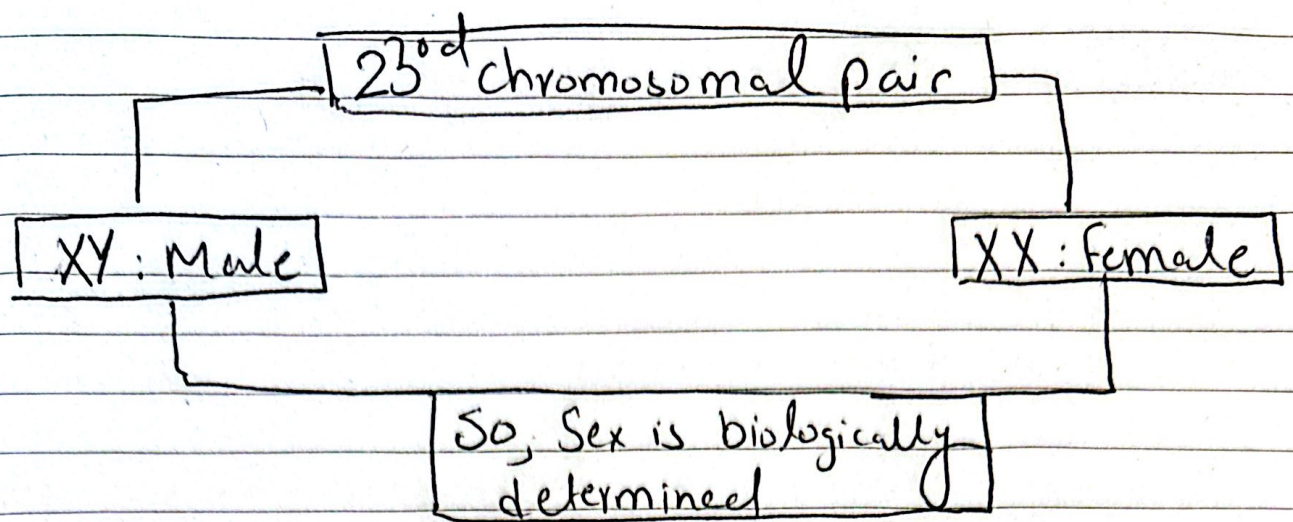 23rd chromosomal pair
XY : Male
XX : Female
So, Sex is biologically
determined